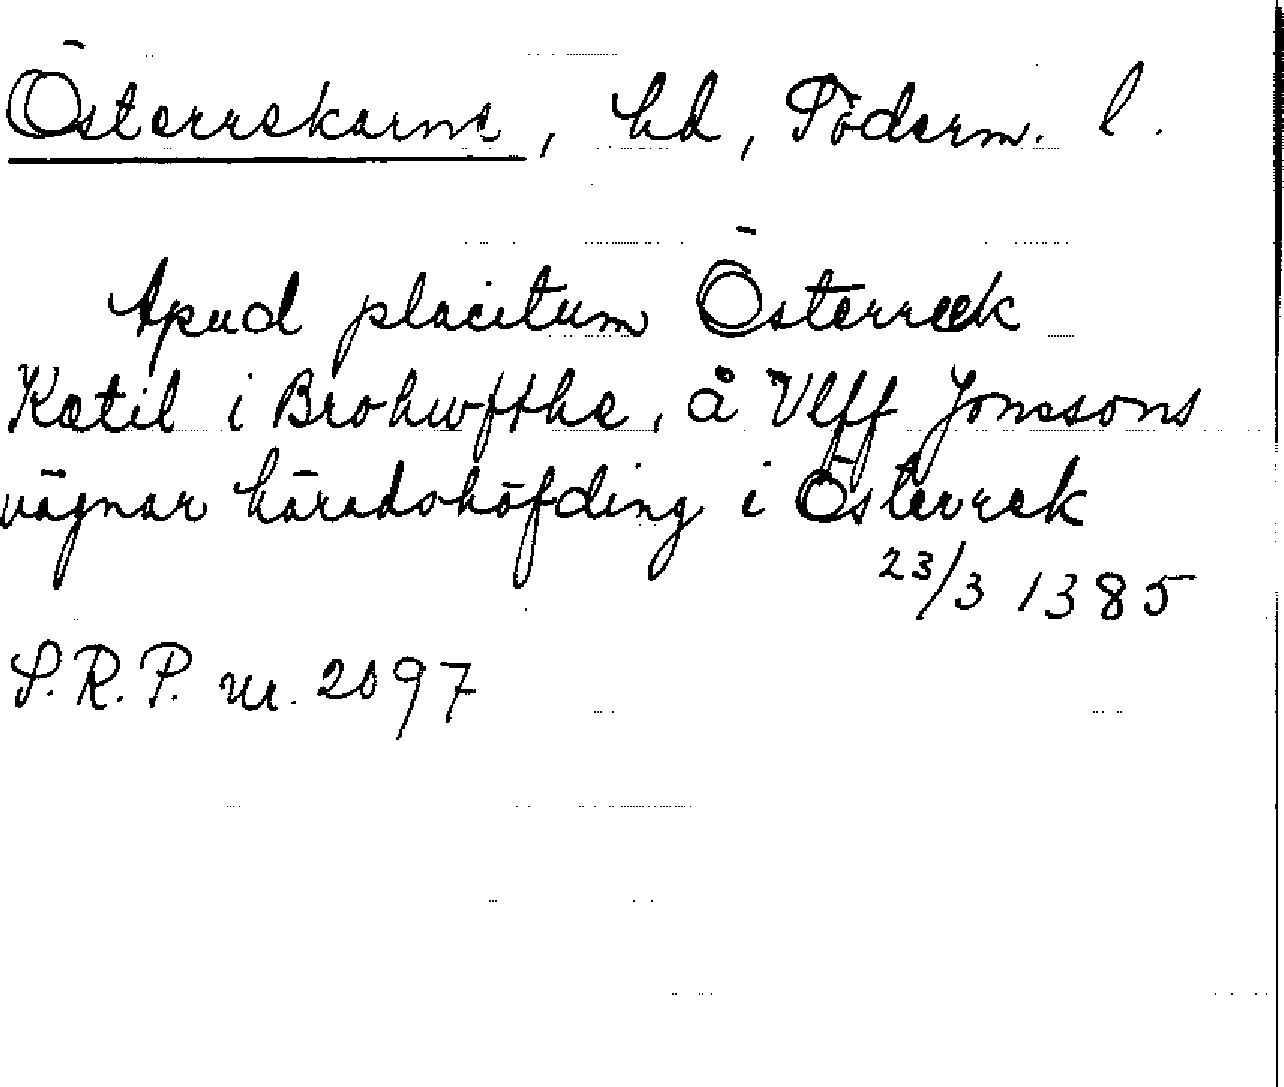 Österrekarne, hd, Söderm. l.
Apud placitum Österreek
Katil i Brohwfthe, å Vlff Jonssons
vägnar häradshöfding i Österrek
23/3 1385
S.R.P. nr. 2097